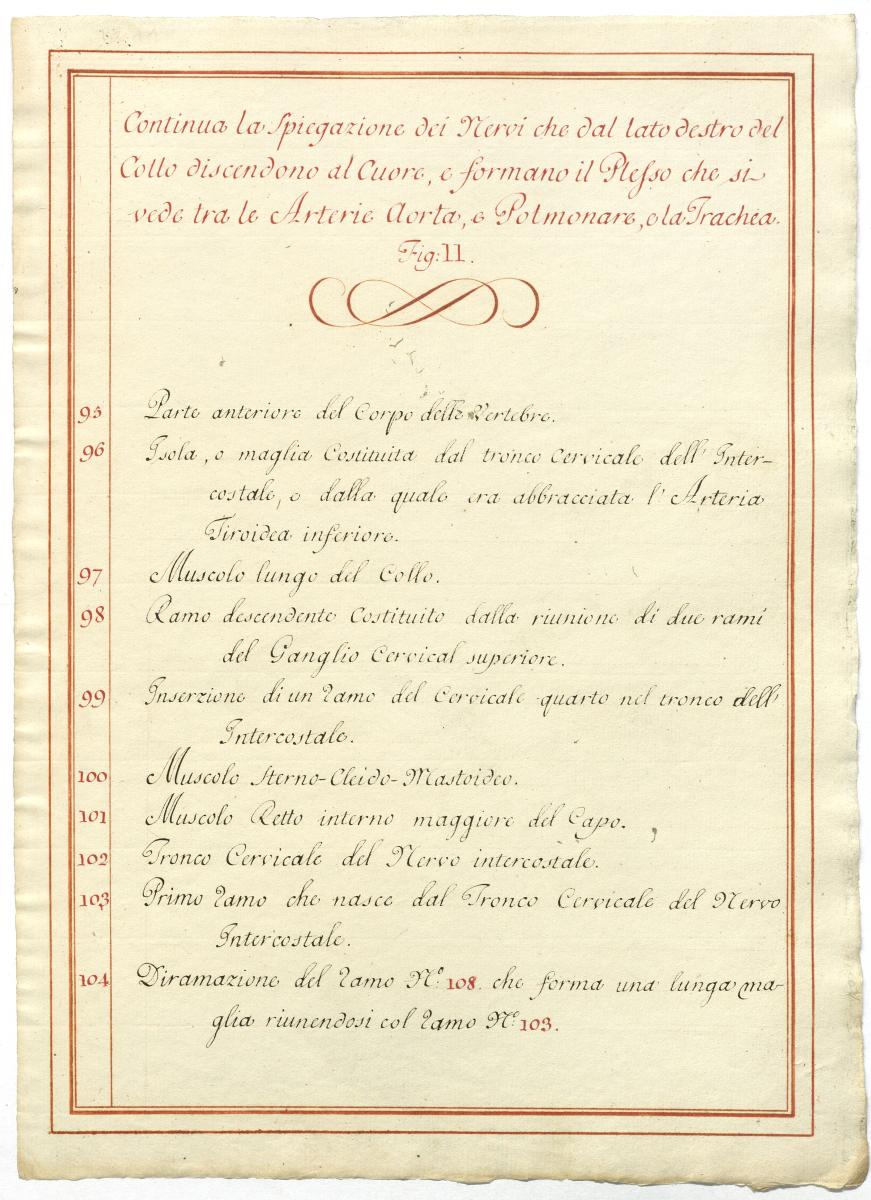 Continua la Spiegazione dei Nervi che dal lato destro del
Collo discendono al Cuore, e formano il Plesso che si
vede tra le Arterie Aorta, e Polmonare, e la Trachea.
Fig: 11.
95 Parte anteriore del Corpo delle Vertebre.
96 Isola, o maglia Costituita dal tronco Cervicale dell' Inter-
costale, e dalla quale era abbracciata l' Arteria
Tiroidea inferiore.
97 Muscolo lungo del Collo.
98 Ramo descendente Costituito dalla riunione di due rami
del Ganglio Cervical superiore.
99 Inserzione di un Ramo del Cervicale quarto nel tronco dell'
Intercostale.
100 Muscolo Sterno-Cleido-Mastoideo.
101 Muscolo Retto interno maggiore del Capo.
102 Tronco Cervicale del Nervo intercostale.
103 Primo Ramo che nasce dal Tronco Cervicale del Nervo
Intercostale.
104 Diramazione del Ramo N.º 108. che forma una lunga ma-
glia riunendosi col Ramo N.º 103.